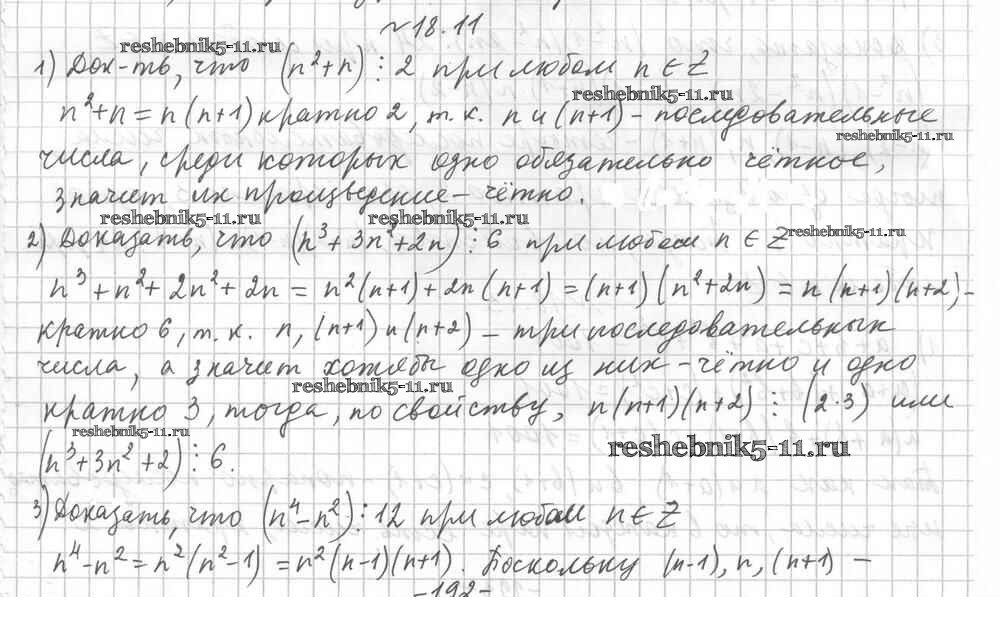 №18.11
reshebnik5-11.ru
1) Док-ть, что (n²+n)⋮2 при любом n∈Z
reshebnik5-11.ru
n²+n=n(n+1) кратно 2, т.к. n и (n+1) – последовательные
reshebnik5-11.ru
числа, среди которых одно обязательно чётное,
значит их произведение – чётно.
reshebnik5-11.ru reshebnik5-11.ru
2) Доказать, что (n³+3n²+2n)⋮6 при любом n∈Z
reshebnik5-11.ru
n³+n²+2n²+2n=n²(n+1)+2n(n+1)=(n+1)(n²+2n)=n(n+1)(n+2)–
кратно 6, т.к. n, (n+1) и (n+2) – три последовательных
числа, а значит хотябы одно из них – чётно и одно
reshebnik5-11.ru
кратно 3, тогда, по свойству, n(n+1)(n+2)⋮(2·3) или
reshebnik5-11.ru
reshebnik5-11.ru
(n³+3n²+2)⋮6.
3) Доказать, что (n⁴–n²)⋮12 при любом n∈Z
n⁴–n²=n²(n²–1)=n²(n–1)(n+1). Поскольку (n–1), n, (n+1) –
–192–